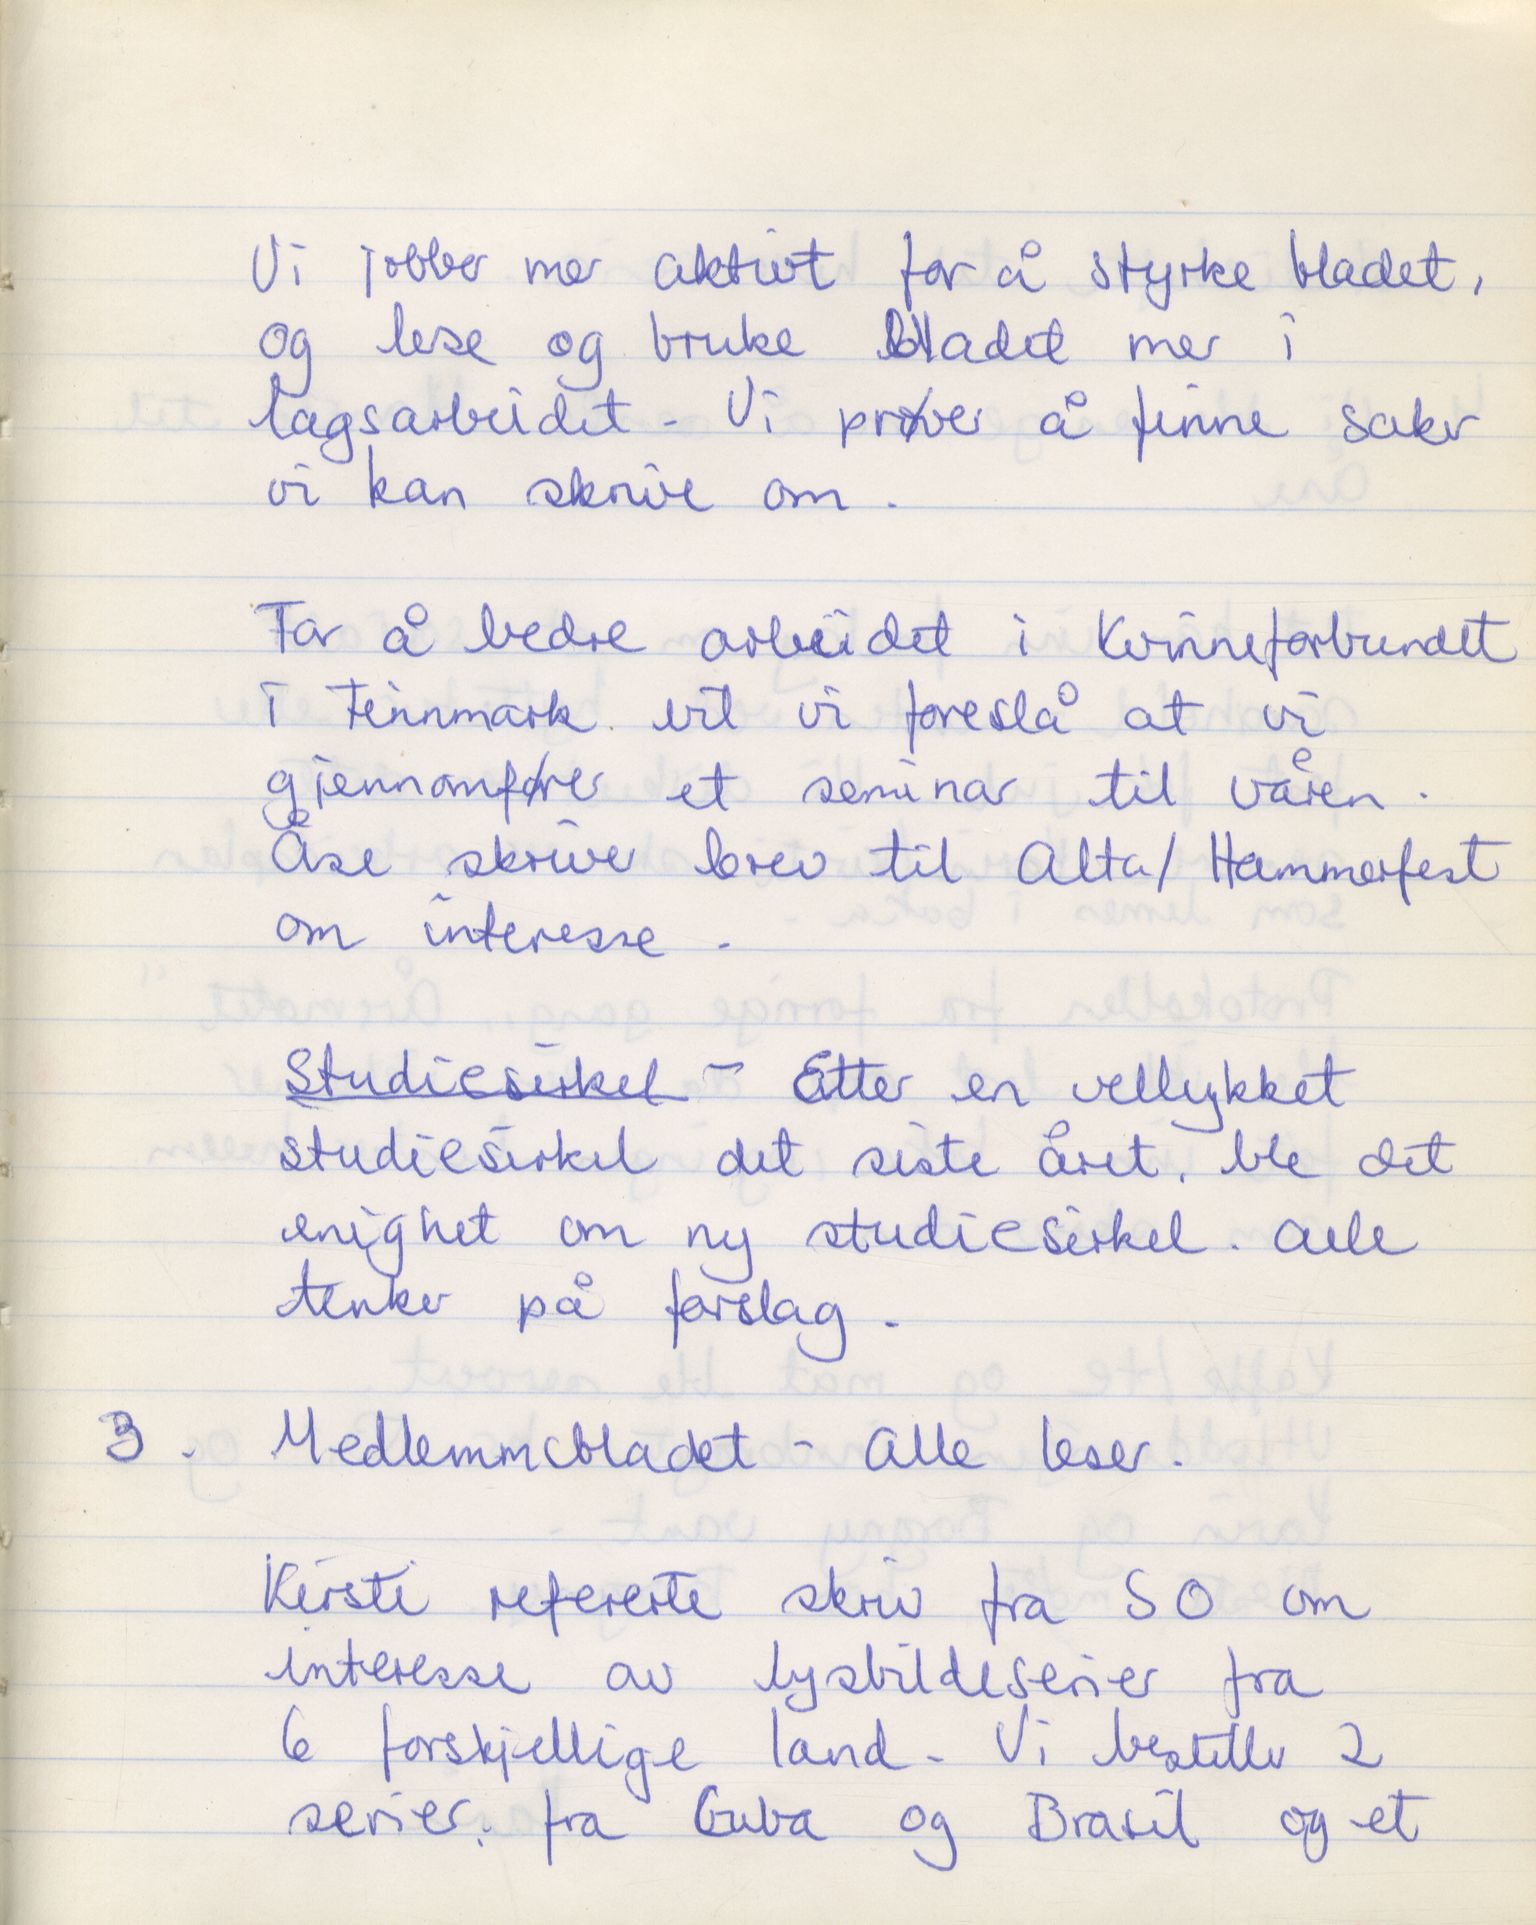 Vi jobber mer aktivt for å styrke bladet,
og lese og bruke bladet mer i
lagsarbeidet - Vi prøver å finne saker
vi kan skrive om.
For å bedre arbeidet i Kvinneforbundet
i Finnmark vil vi foreslå at vi
gjennomfører et seminar til våren.
Åse skriver brev til Alta/Hammerfest
om interesse.
Studiesirkel - Etter en vellykket
studiesirkel det siste året, ble det
enighet om ny studiesirkel. Alle
tenker på forslag.
3. Medlemmsbladet - Alle leser.
Kirsti refererte skriv fra SO om
interesse av lysbildeserier fra
6 forskjellige land - Vi bestiller 2
serier, fra Cuba og Brasil og et